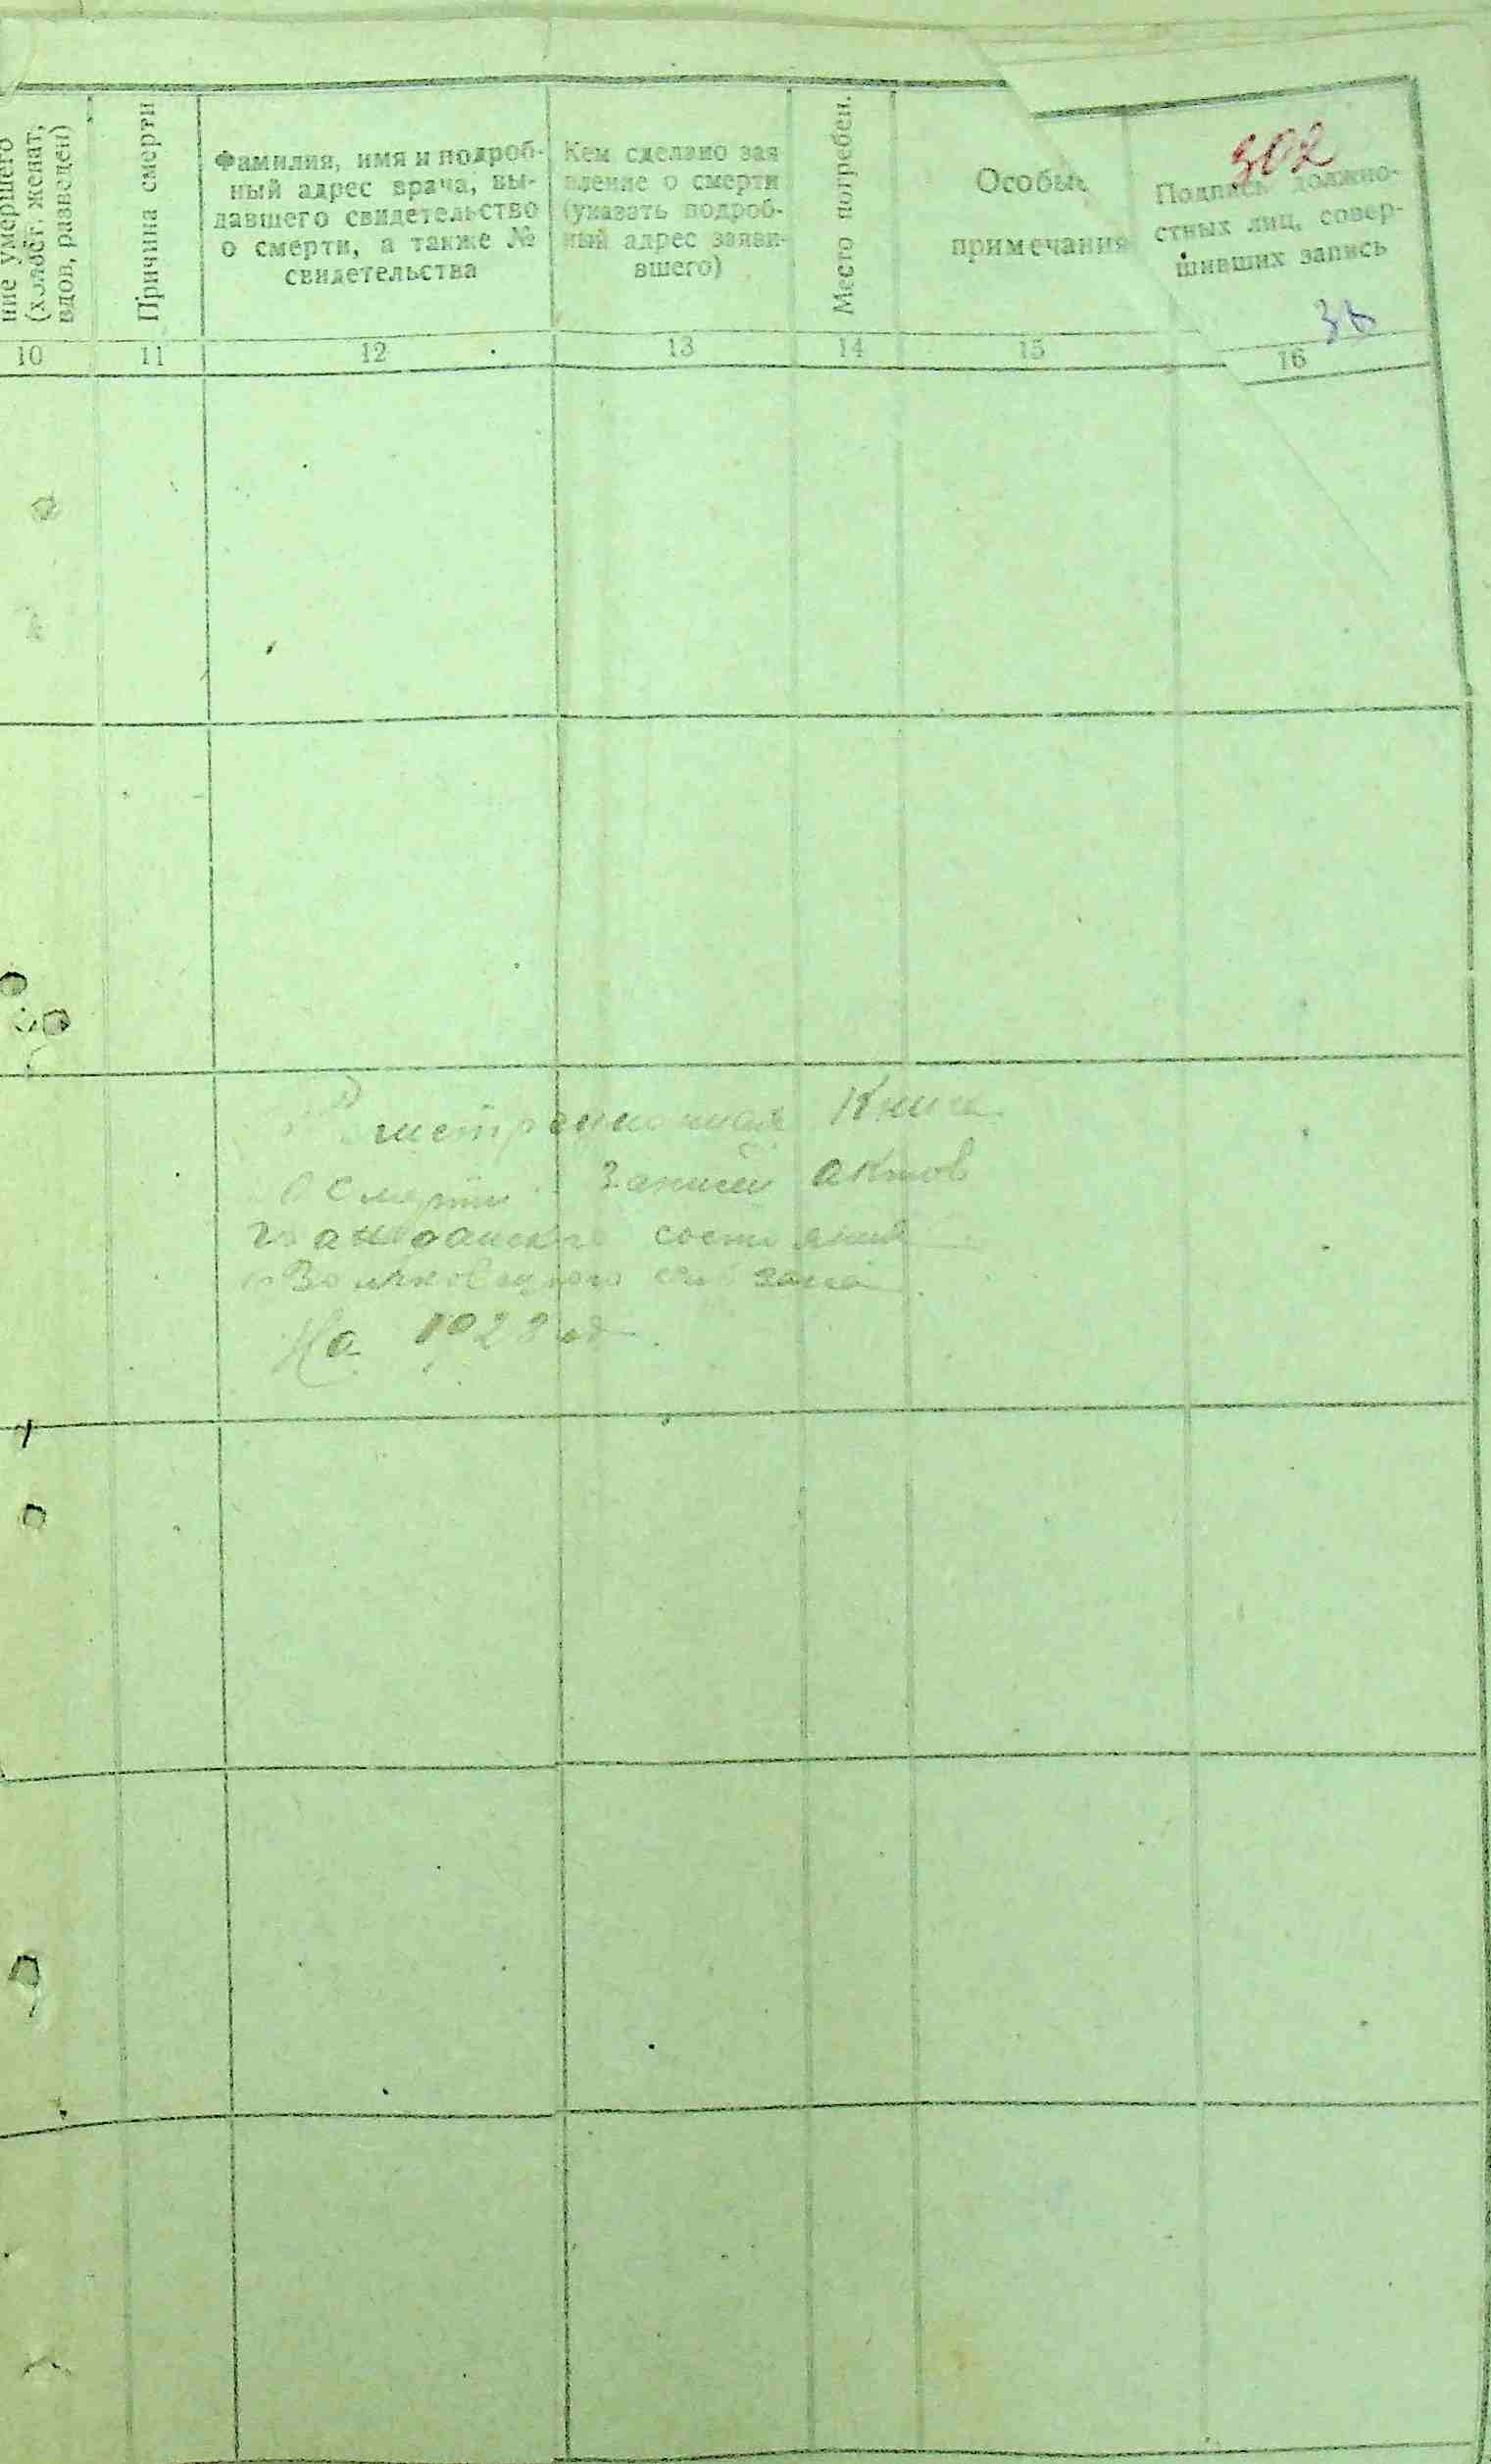 ние умершего
(холост. женат,
вдов, разведен)
Причина смерти
Фамилия, имя и подроб-
ный адрес врача, вы-
давшего свидетельство
о смерти, а также №
свидетельства
Кем сделано зая
вление о смерти
(указать подроб-
ный адрес заяви-
вшего)
Место погребен.
Особые
примечания
502
Подпись должно-
стных лиц, совер-
шивших запись
10
11
12
13
14
15
16
Книга
О Смерти Записи актов
гражданского состояния
На 1928 год